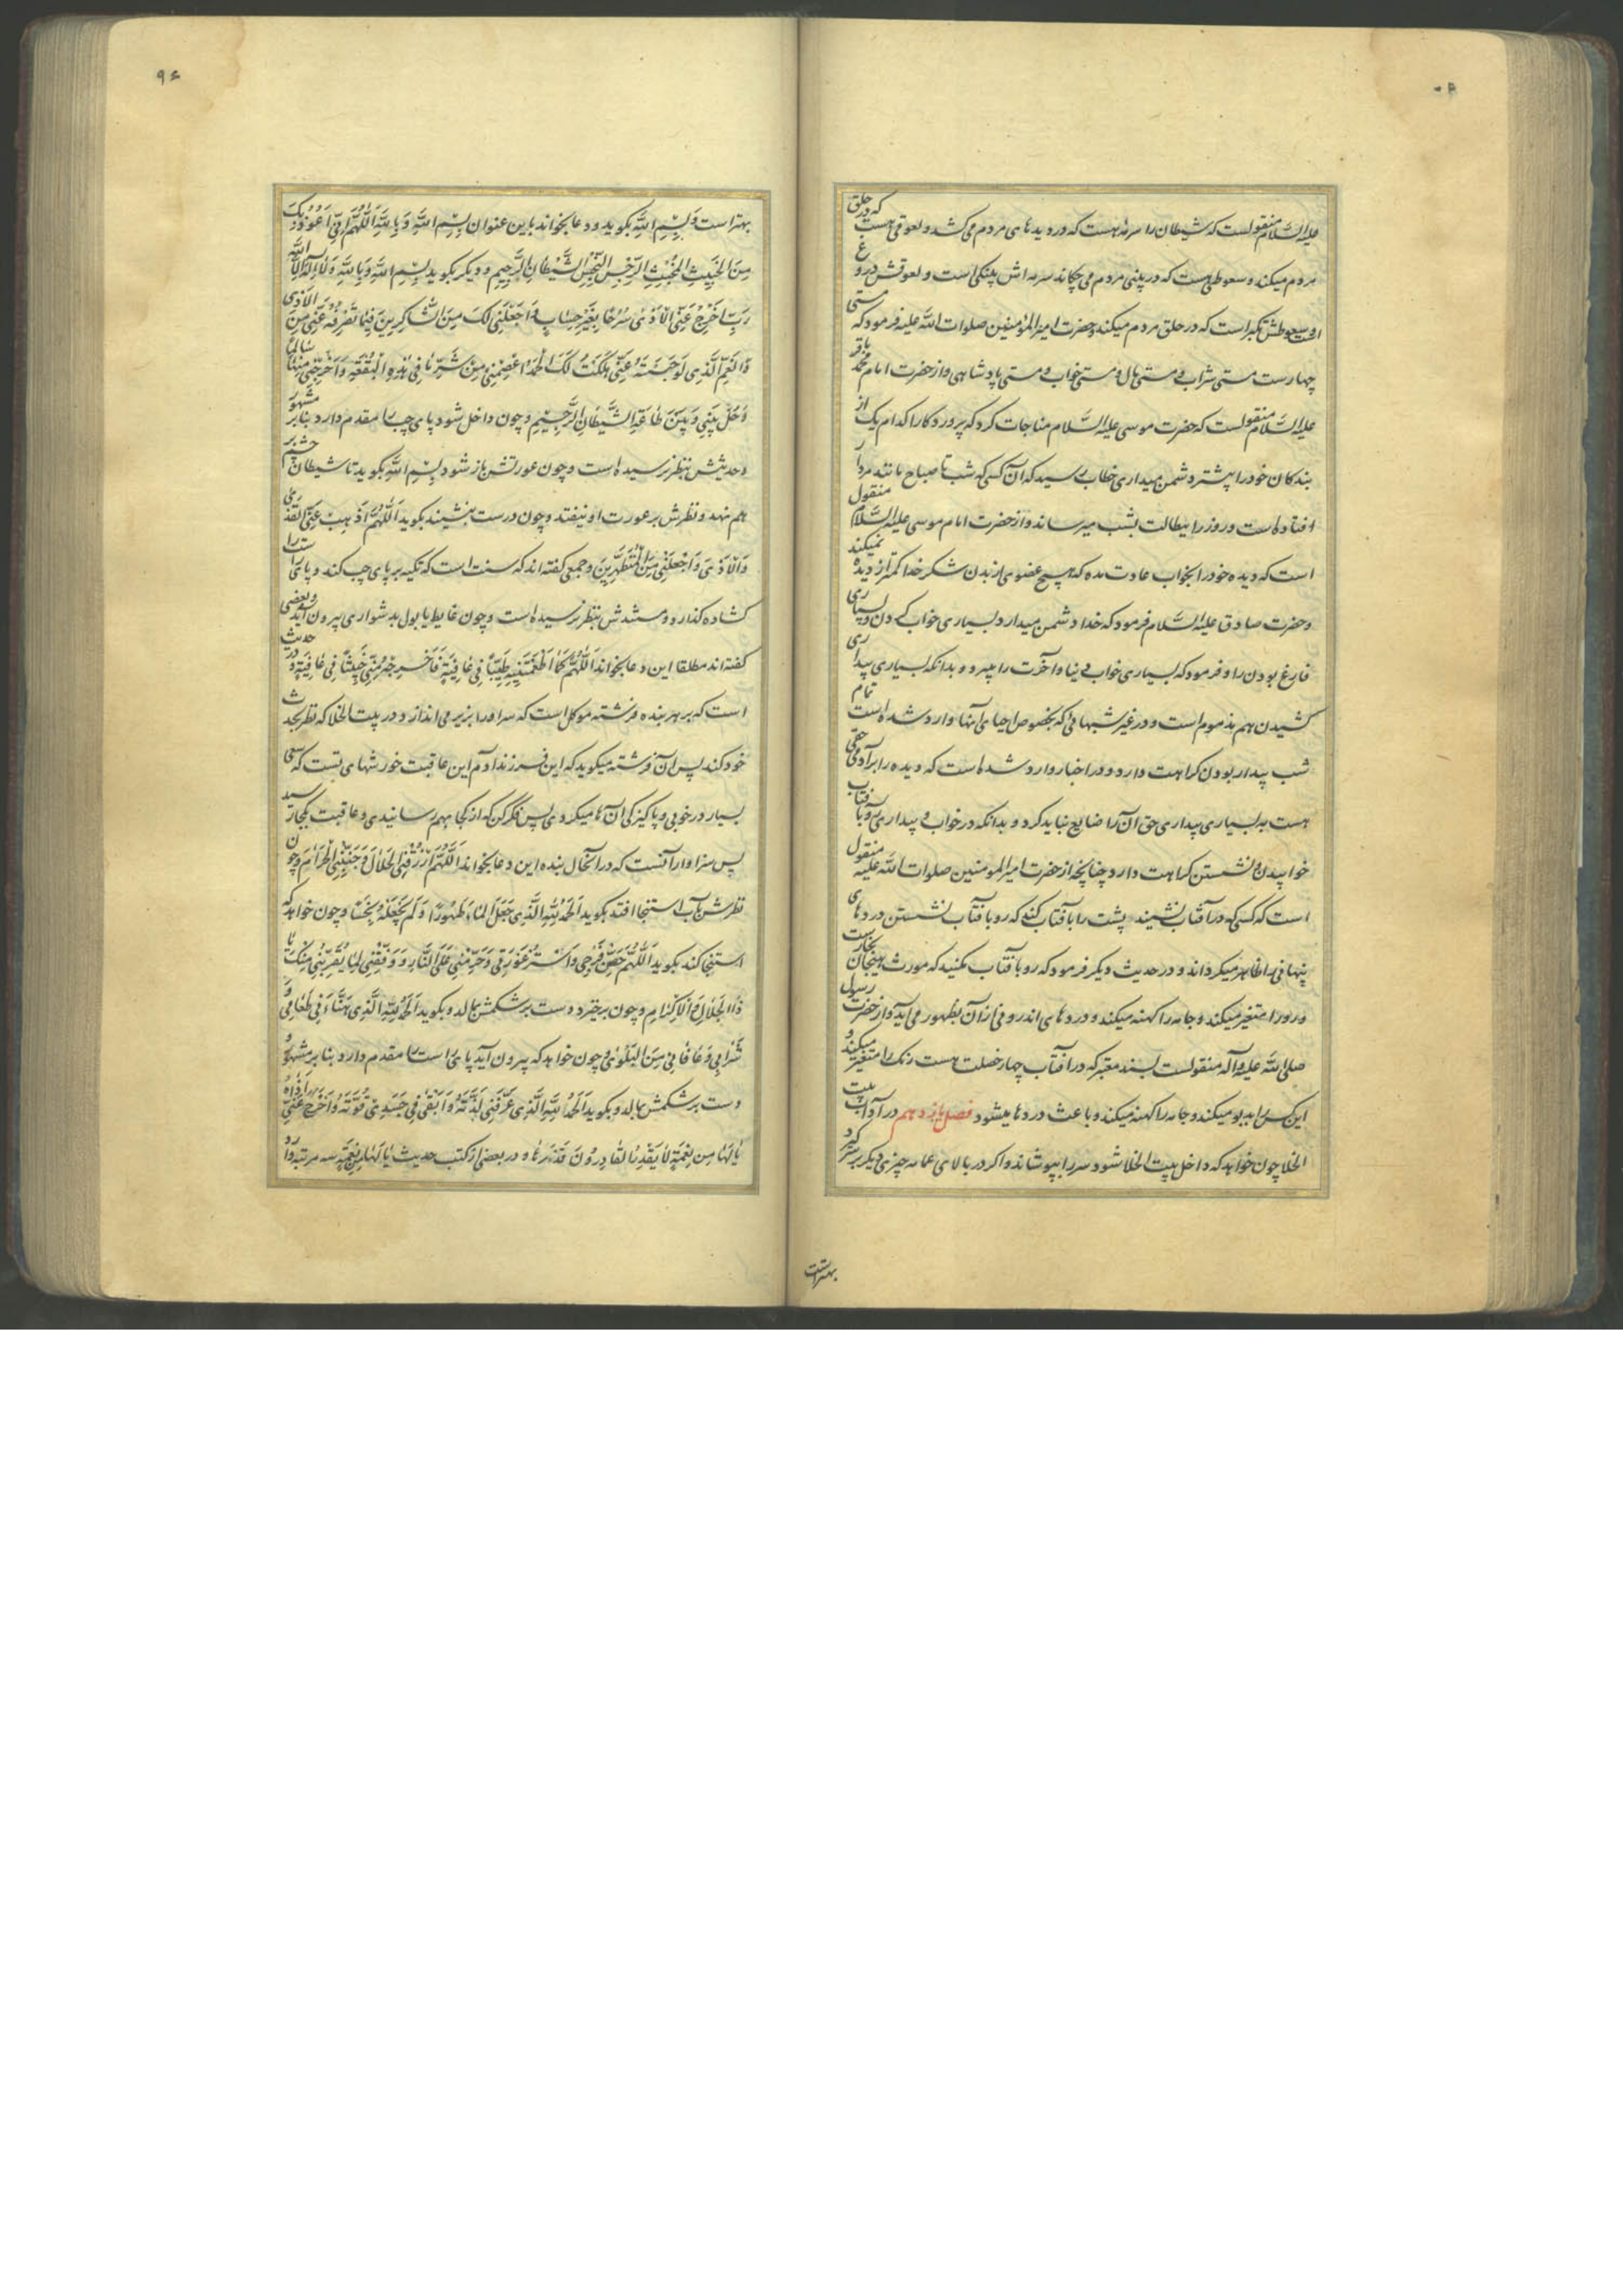 علیه السلام منقولست که شیطان را سرمه هست که در دیدهای مردم می کشد و لعوقی هست که در حلق
مردم میکند و سعوطی هست که در بینی مردم می چکاند سرمه اش پینکی است و لعوقش دروغ
است و سعوطش تکبر است که در حلق مردم میکند و حضرت امیر المؤمنین صلوات الله علیه فرمود که مستی
چهارست مستی شراب و مستی مال و مستی خواب و مستی پادشاهی و از حضرت امام محمد باقر
علیه السلام منقولست که حضرت موسی علیه السلام مناجات کرد که پروردکارا کدام یک از
بندکان خود را بیشتر دشمن میداری خطاب رسید که آن کسی که شب تا صباح مانند مردار
افتاده است و روز را ببطالت بشب میرساند و از حضرت امام موسی علیه السلام منقول
است که دیده خود را بخواب عادت مده که هیچ عضوی از بدن شکر خدا کمتر از دیده نمیکند
و حضرت صادق علیه السلام فرمود که خدا دشمن میدارد بسیاری خواب کردن و بسیاری
فارغ بودن را و فرمود که بسیاری خواب دنیا و آخرت را میبرد و بدانکه بسیاری بیداری
کشیدن هم مذموم است و در غیر شبهائی که بخصوص احیای آنها وارد شده است تمام
شب بیدار بودن کراهت دارد و در اخبار وارد شده است که دیده را بر آدمی حقی
هست به بسیاری بیداری حق آن را ضایع نباید کرد و بدانکه در خواب و بیداری رو بآفتاب
خوابیدن و نشستن کراهت دارد چنانچه از حضرت امیر المومنین صلوات الله علیه منقول
است که کسی که در آفتاب نشیند پشت را بآفتاب کند که رو بآفتاب نشستن دردهای
پنهانی را ظاهر میکرداند و در حدیث دیکر فرمود که رو بآفتاب مکنید که مورث هیجان بخارست
و رو را متغیر میکند و جامه را کهنه میکند و دردهای اندرونی از آن بظهور می آید و از حضرت رسول
صلی الله علیه و آله منقولست بسند معتبر که در آفتاب چهار خصلت هست رنک را متغیر میکند و
این کس را بدبو میکند و جامه را کهنه میکند و باعث دردها میشود فصل یازدهم در آداب بیت
الخلا چون خواهد که داخل بیت الخلا شود سر را بپوشاند و اکر در بالای عمامه چیزی دیکر بر سر کیرد
بهتر است
۹۶
بهتر است و بسم الله بکوید و دعا بخواند باین عنوان بِسْمِ اللهِ وَ بِاللهِ اَللّهُمَّ اِنّی اَعُوذُ بِکَ
مِنَ الْخَبِیثِ الْمُخْبِثِ الرِّجْسِ النَّجِسِ الشَّیْطانِ الرَّجِیمِ و دیکر بکوید بِسْمِ اللهِ وَ بِاللهِ وَ لا اِلهَ اِلَّا اللهُ
رَبِّ اَخْرِجْ عَنِّی الْاَذی سُرُحًا بِغَیْرِ حِسابٍ وَ اجْعَلْنِی لَکَ مِنَ الشّاکِرِینَ فِیما تَصْرِفُهُ عَنّی مِنَ الْاَذی
وَ الْغَمِّ الَّذِی لَوْ حَبَسْتَهُ عَنّی هَلَکْتُ لَکَ الْحَمْدُ اِعْصِمْنِی مِنْ شَرِّ ما فِی هذِهِ الْبُقْعَةِ وَ اَخْرِجْنِی مِنْها سالِمًا
وَ حُلْ بَیْنِی وَ بَیْنَ طاعَةِ الشَّیْطانِ الرَّجِیمِ و چون داخل شود پای چپ را مقدم دارد بنابر مشهور
و حدیثش بنظر نرسیده است و چون عورتش باز شود بسم الله بکوید تا شیطان چشم بر
هم نهد و نظرش بر عورت او نیفتد و چون درست بنشیند بکوید اَللّهُمَّ اَذْهِبْ عَنِّی الْقَذی
وَ الْاَذی وَ اجْعَلْنِی مِنَ الْمُتَطَهِّرِینَ و جمعی کفته اند که سنت است که تکیه بر پای چپ کند و پای راست را
کشاده کذارد و مستندش بنظر نرسیده است و چون غایط یا بول بدشواری بیرون آید و بعضی
کفته اند مطلقا این دعا بخواند اَللّهُمَّ کَما اَطْعَمْتَنِیهِ طَیِّبًا فِی عافِیَةٍ فَاَخْرِجْهُ مِنّی خَبِیثًا فِی عافِیَةٍ و در حدیث
است که بر هر بنده فرشته موکل است که سر او را بزیر می اندازد در بیت الخلا که نظر بحدث
خود کند پس آن فرشته میکوید که این فرزند آدم این عاقبت خورشهای تست که سعی
بسیار در خوبی و پاکیزکی آن ها میکردی پس فکر کن که از کجا بهم رسانیدی و عاقبت بکجا رسید
پس سزاوار آنست که در آنحال بنده این دعا بخواند اَللّهُمَّ ارْزُقْنِی الْحَلالَ وَ جَنِّبْنِی الْحَرامَ و چون
نظرش بآب استنجا افتد بکوید اَلْحَمْدُ لِلّهِ الَّذِی جَعَلَ الْماءَ طَهُورًا وَ لَمْ یَجْعَلْهُ نَجِسًا و چون خواهد که
استنجا کند بکوید اَللّهُمَّ حَصِّنْ فَرْجِی وَ اسْتُرْ عَوْرَتِی وَ حَرِّمْنِی عَلَی النّارِ وَ وَفِّقْنِی لِما یُقَرِّبُنِی مِنْکَ یا
ذَا الْجَلالِ وَ الْاِکْرامِ و چون برخیزد دست بر شکمش بمالد و بکوید اَلْحَمْدُ لِلّهِ الَّذِی هَنَّاَنِی طَعامِی وَ
شَرابِی وَ عافانِی مِنَ الْبَلْوی و چون خواهد که بیرون آید پای راست را مقدم دارد بنابر مشهور و
دست بر شکمش بمالد و بکوید اَلْحَمْدُ لِلّهِ الَّذِی عَرَّفَنِی لَذَّتَهُ وَ اَبْقی فِی جَسَدِی قُوَّتَهُ وَ اَخْرَجَ عَنّی اَذاهُ
یا لَها مِنْ نِعْمَةٍ لا یَقْدِرُ الْقادِرُونَ قَدْرَها و در بعضی از کتب حدیث یا لَها مِنْ نِعْمَةٍ سه مرتبه وارد